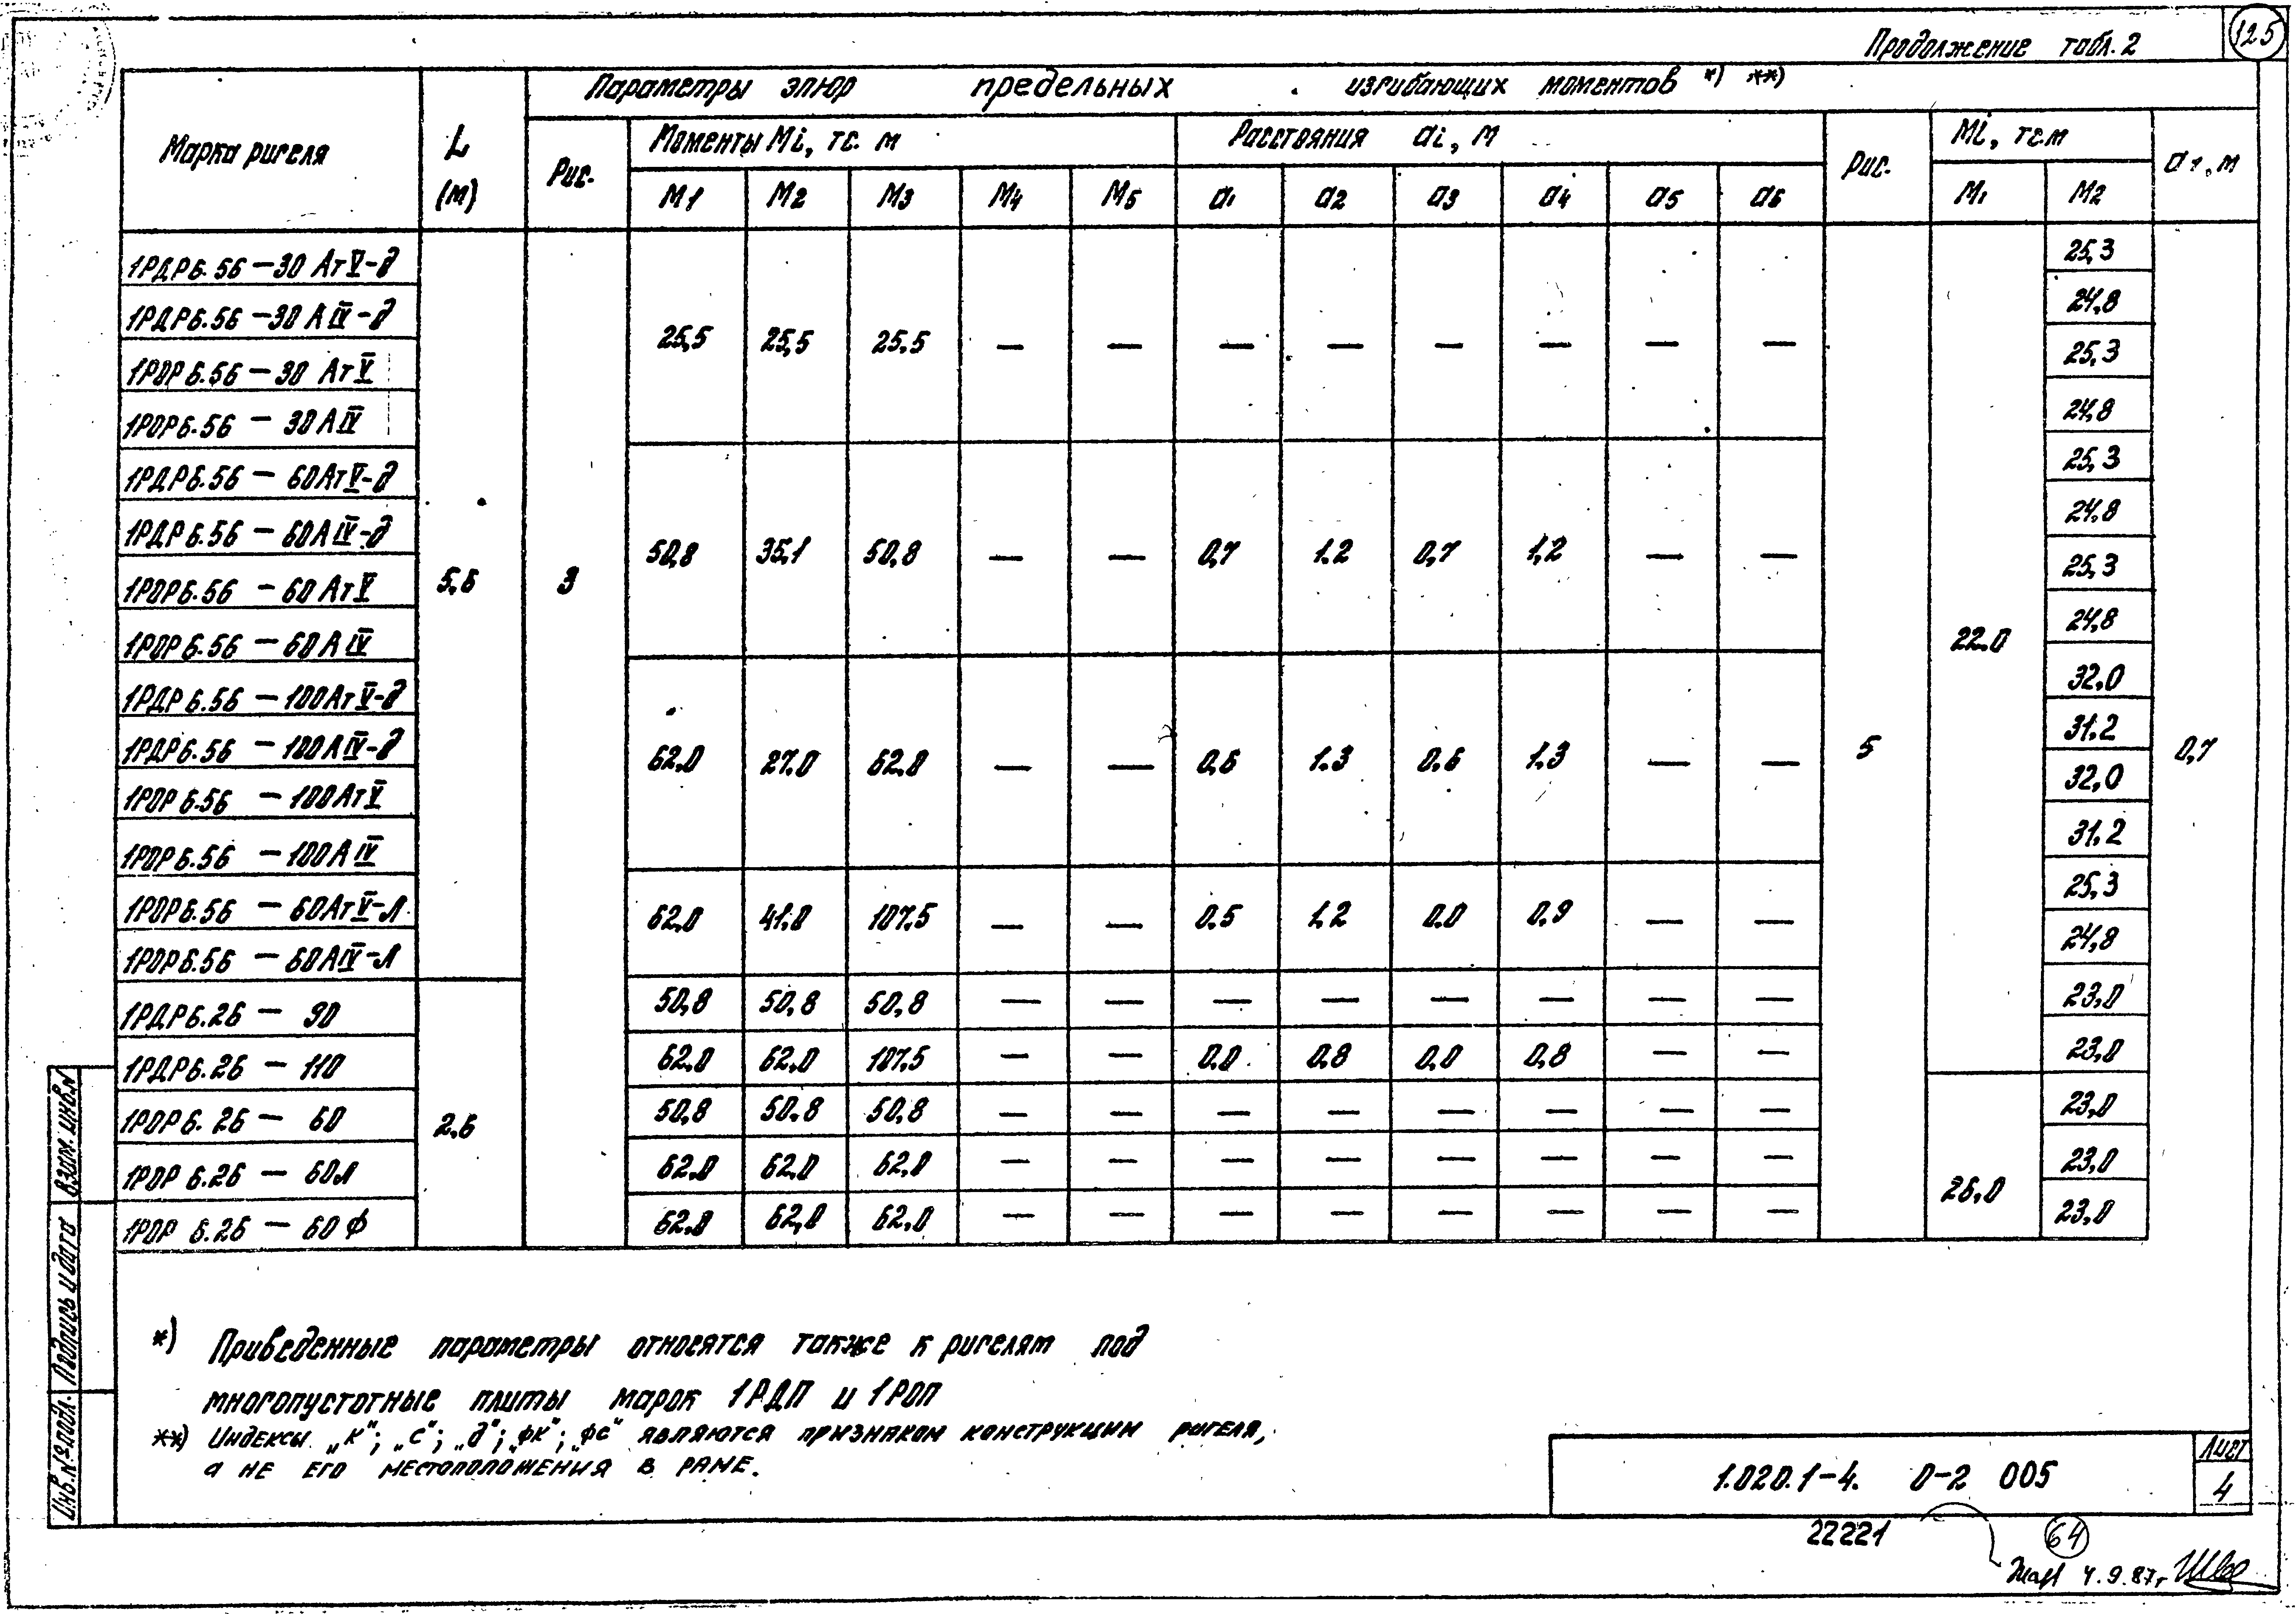 125
Продолжение табл. 2
Марка ригеля
L
(м)
Параметры эпюр предельных изгибающих моментов *) **)
Рис.
Моменты Mi, тс. м
Расстояния ai, м
Рис.
Mi, тс.м
a1, м
M1 M2 M3 M4 M5 a1 a2 a3 a4 a5 a6 M1 M2
1РДР6.56 — 30 АтV-д 25,3
1РДР6.56 — 30 АIV-д 24,8
25,5 25,5 25,5 — — — — — — — —
1РОР6.56 — 30 АтV 25,3
1РОР6.56 — 30АIV 24,8
1РДР6.56 — 60АтV-д 25,3
1РДР6.56 — 60АIV-д 24,8
50,8 35,1 50,8 — — 0,7 1.2 0,7 1,2 — —
5,6 3
1РОР6.56 — 60 АтV 25,3
1РОР6.56 — 60А IV 24,8
22.0
1РДР6.56 — 100АтV-д 32,0
1РДР6.56 — 100АIV-д 31.2
62.0 27.0 62.0 — — 0,6 1.3 0.6 1.3 — —
5 0,7
1РОР6.56 — 100АтV 32,0
1РОР6.56 — 100А IV 31,2
1РОР6.56 — 60АтV-л 25,3
62.0 41.0 107.5 — — 0.5 1.2 0.0 0.9 — —
1РОР6.56 — 60АIV-л 24,8
1РДР6.26 — 90 50,8 50,8 50,8 — — — — — — — — 23,0
1РДР6.26 — 110 62.0 62.0 107.5 — — 0.0 0.8 0.0 0,8 — — 23,0
1РОР6.26 — 60 50,8 50.8 50,8 — — — — — — — — 23,0
2.6
1РОР6.26 — 60л 62.0 62.0 62,0 — — — — — — — — 23,0
26,0
1РОР 6.26 — 60ф 62.0 62,0 62.0 — — — — — — — — 23,0
*) Приведенные параметры относятся также к ригелям под
многопустотные плиты марок 1РДП и 1РОП
**) Индексы „к"; „с"; „д"; „фк"; „фс" являются признаком конструкции ригеля,
а не его местоположения в раме.
Взам. инв.№
Подпись и дата
Инв.№ подл.
1.020.1-4. 0-2 005
Лист
4
22221
64
4.9.87г